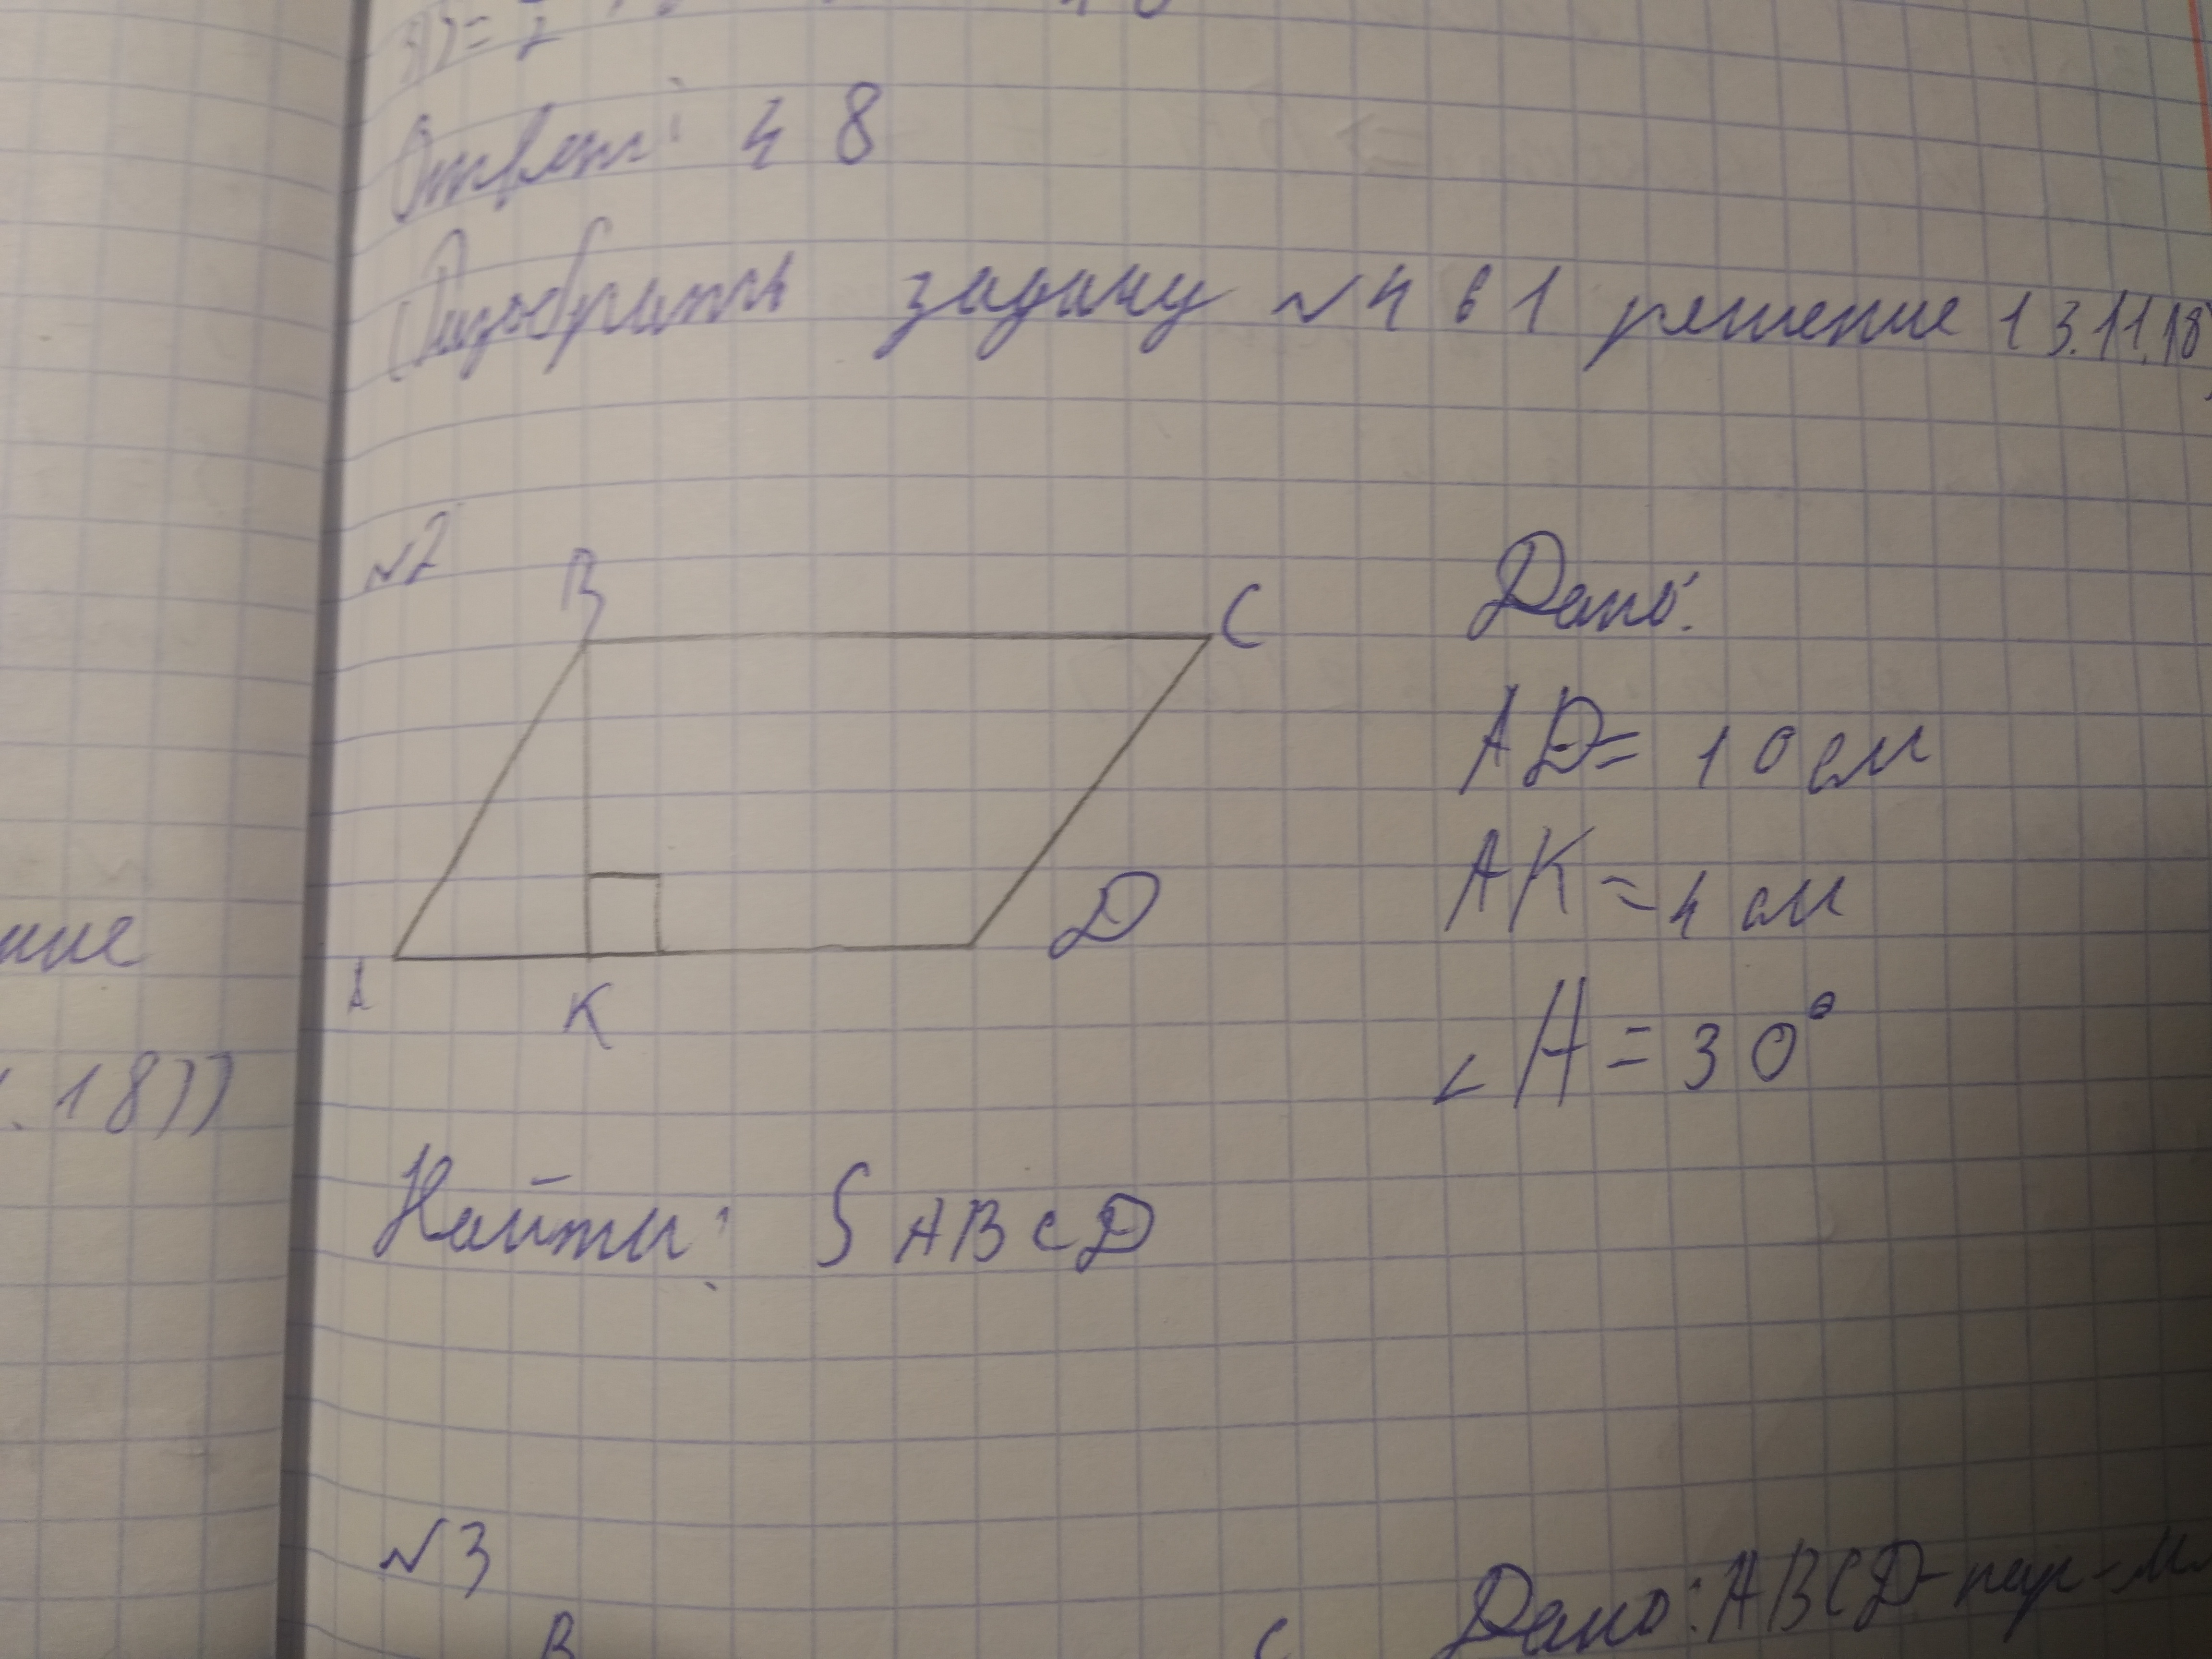 Ответ: 48
Разобрать задачу №4 в 1 решение 13.11.18
№2
B
C
Дано:
AD = 10 см
AK = 4 см
∠A = 30°
A
K
D
ние
.18))
Найти: S ABCD
№3
B
C
Дано: ABCD - пар-м